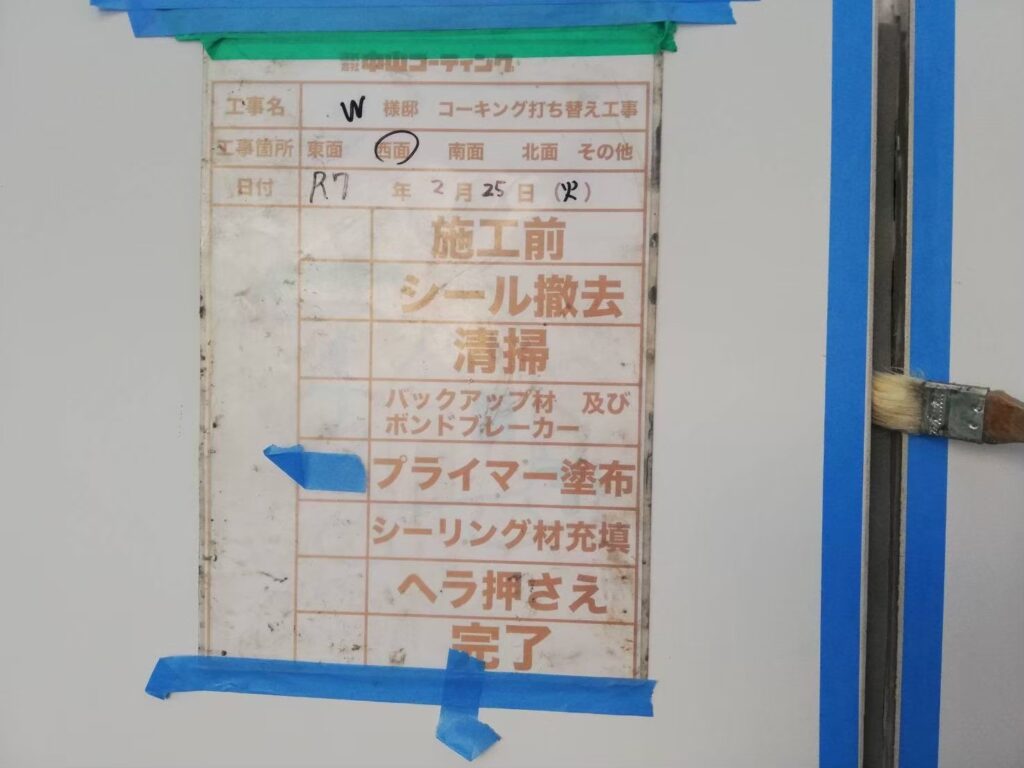 株式会社 中山コーティング
工事名 W 様邸 コーキング打ち替え工事
工事箇所 東面 西面 南面 北面 その他
日付 R7 年 2 月 25 日 (火)
施工前
シール撤去
清掃
バックアップ材 及び
ボンドブレーカー
プライマー塗布
シーリング材充填
ヘラ押さえ
完了